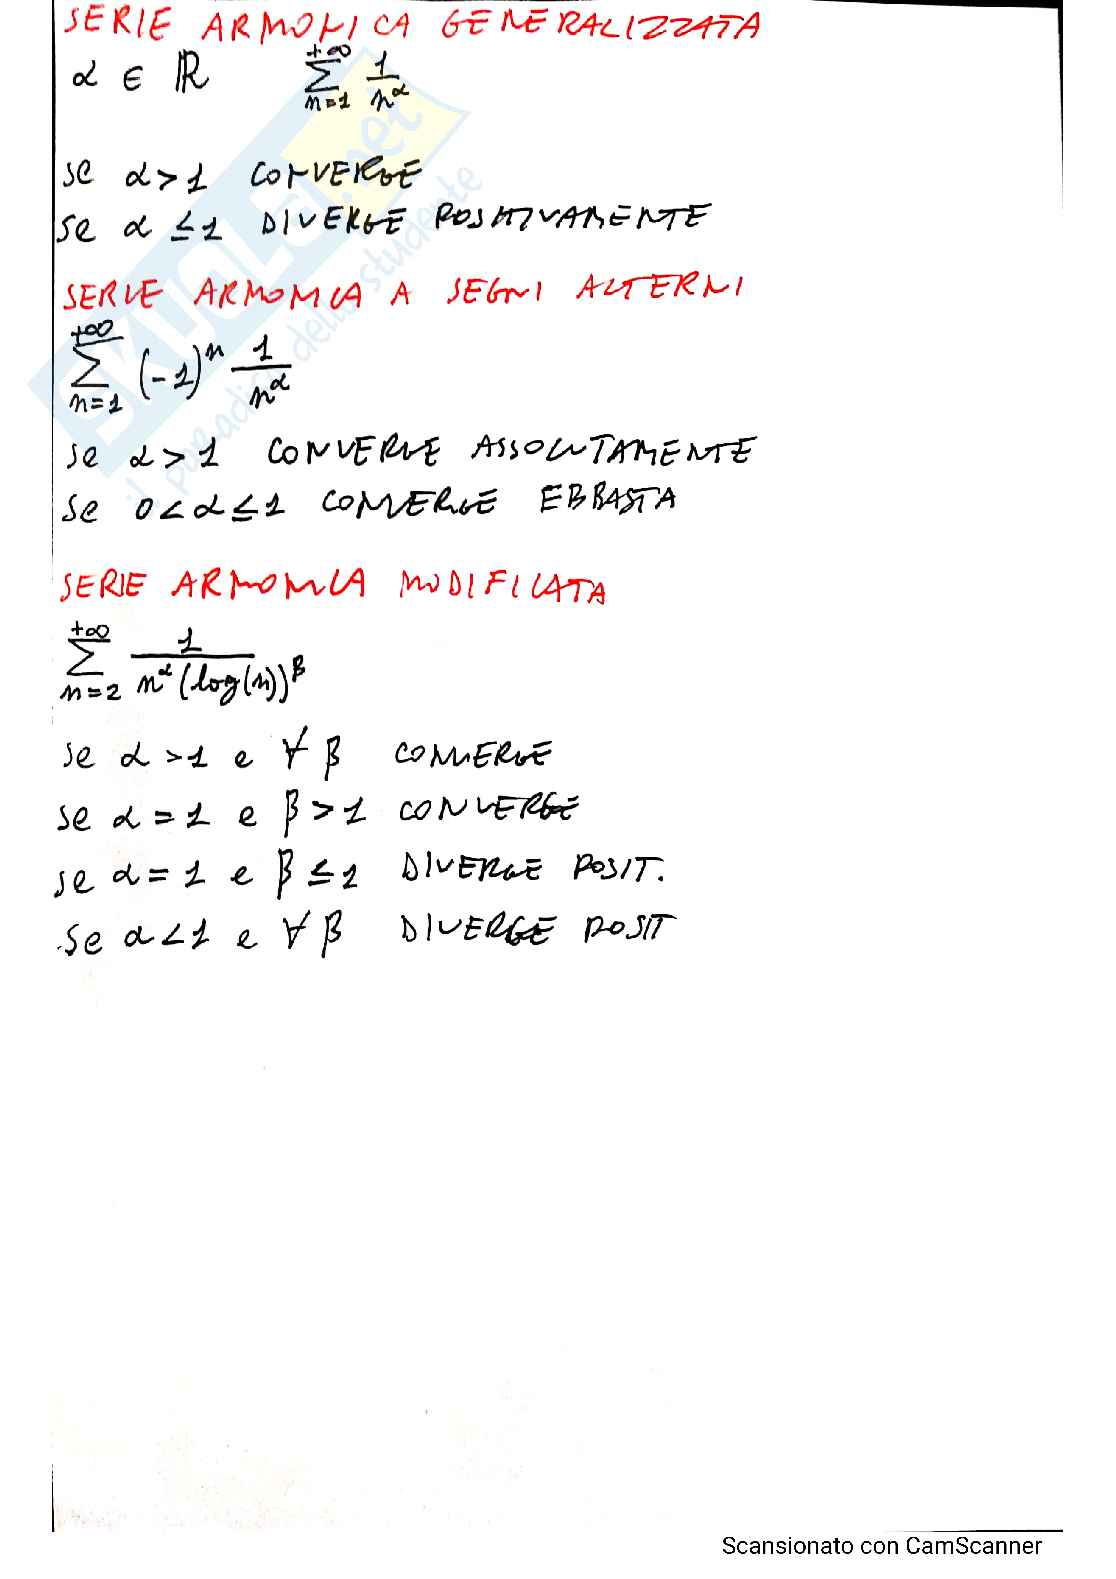 SERIE ARMONICA GENERALIZZATA
α ∈ ℝ ∑_{n=1}^{+∞} 1/n^α
se α > 1 CONVERGE
se α ≤ 1 DIVERGE POSITIVAMENTE
SERIE ARMONICA A SEGNI ALTERNI
∑_{n=1}^{+∞} (-1)^n 1/n^α
se α > 1 CONVERGE ASSOLUTAMENTE
se 0 < α ≤ 1 CONVERGE E BASTA
SERIE ARMONICA MODIFICATA
∑_{n=2}^{+∞} 1/(n^α (log(n))^β)
se α > 1 e ∀ β CONVERGE
se α = 1 e β > 1 CONVERGE
se α = 1 e β ≤ 1 DIVERGE POSIT.
se α < 1 e ∀ β DIVERGE POSIT
SKUOLA.net
il paradiso dello studente
Scansionato con CamScanner